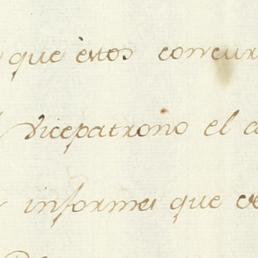 que èstos concur
vicepatrono el
informes que